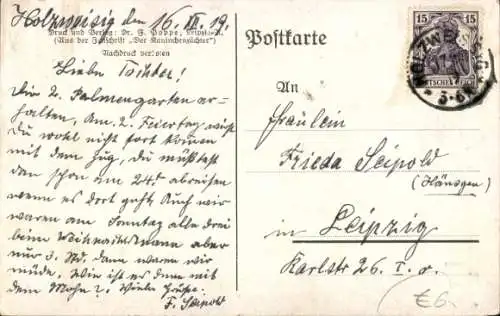 Holzweißig den 16. XII. 19.
Druck und Verlag: Dr. F. Poppe, Leipzig-R.
(Aus der Zeitschrift „Der Kaninchenzüchter"
Nachdruck verboten
Liebe Tochter!
Die 2. Palmengarten er-
halten. Am 2. Feiertag wirst
Du wohl nicht fort kommen
mit dem Zug, Du müßtest
den schon am 24t abreisen
wenn es dort geht. Auch wir
waren am Sonntag alle drei
beim Weihnachtsmann aber
nur 3. Std. dann waren wir
müde. Wie ist es denn mit
dem Mohn? Viele Grüße.
F. Seipold
Postkarte
15 15
DEUTSCHES REICH
HOLZWEISSIG
An
Fräulein
Frieda Seipold
(Hänsgen)
in Leipzig
Karlstr 26 I. r.
€6.-